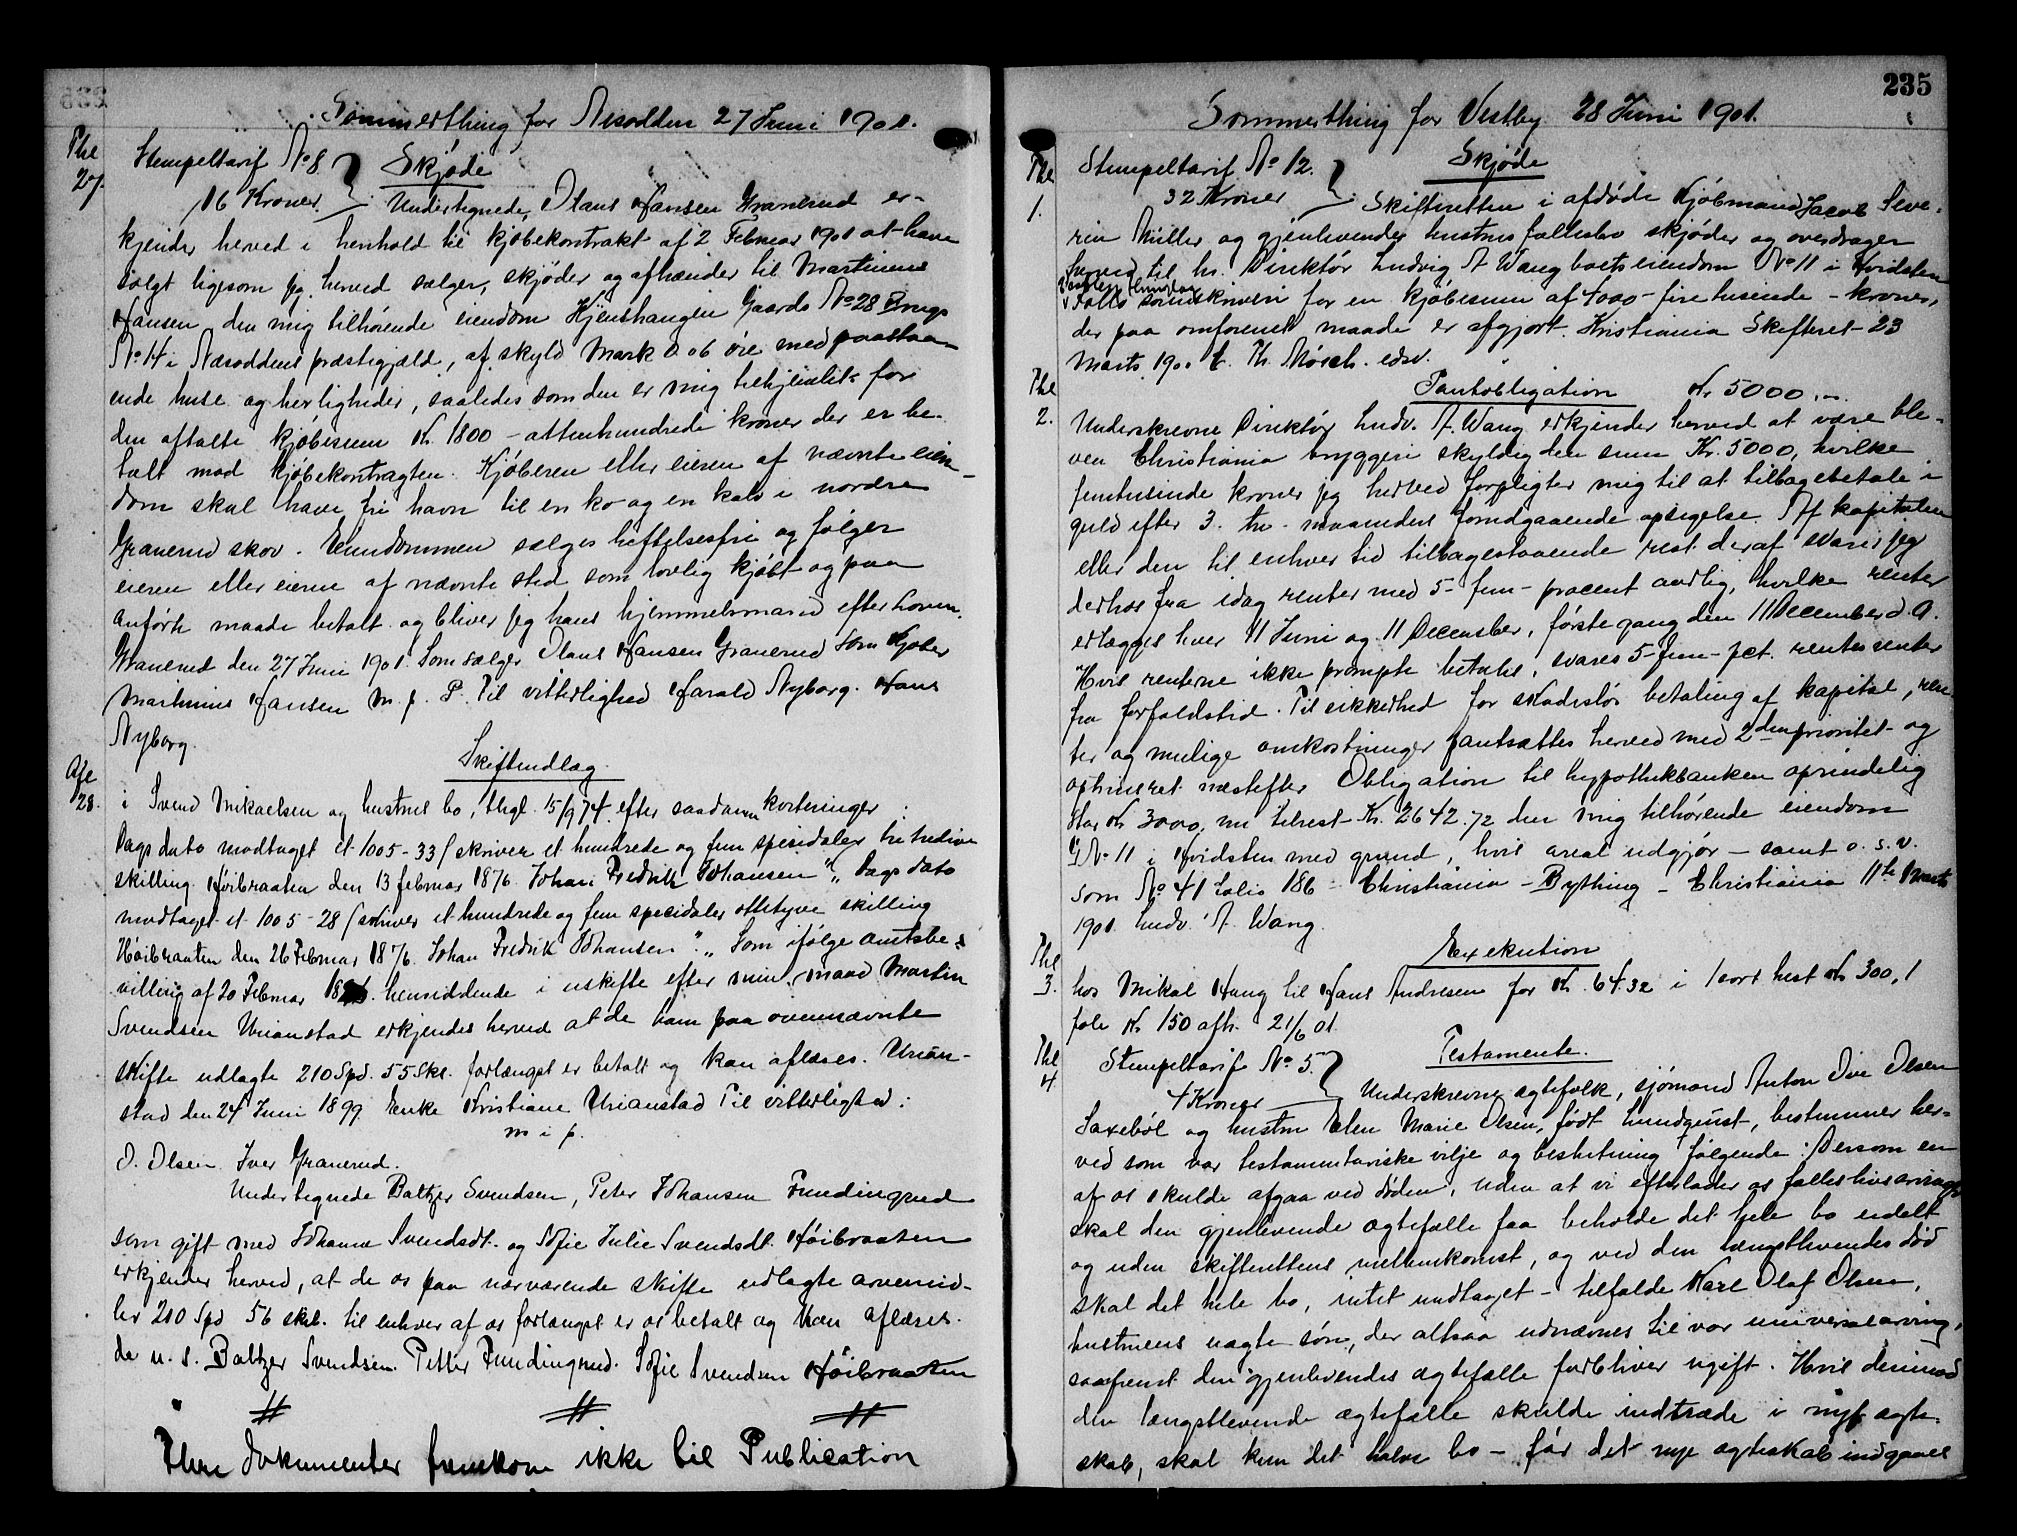 Sommerthing for Nesodden 27 Juni 1901.
Thl
27.
Stempeltarif No 8 } Skjøde
16 Kroner. Undertegnede, Olaus Hansen Granerud er-
kjender herved i henhold til kjøbekontrakt af 2 Februar 1901 at have
solgt ligesom jeg herved sælger, skjøder og afhænder til Martinius
Hansen den mig tilhørende eiendom Kjensthaugen Gaards No 28 Brugs
No 14 i Næsoddens præstegjæld, af skyld Mark 0.06 øre med paastaa-
ende huse og herligheder, saaledes som den er mig tilhjemlet for
den aftalte kjøbesum Kr. 1800 – attenhundrede kroner der er be-
talt mod kjøbekontragten. Kjøberen eller eieren af nævnte eien-
dom skal have fri havn til en ko og en kalv i nordre
Granerud skov. Eiendommen sælges heftelsesfri og følger
eieren eller eierne af nævnte sted som lovlig kjøbt og paa
anførte maade betalt og bliver jeg hans hjemmelsmand efter Loven.
Granerud den 27 Juni 1901. Som sælger Olaus Hansen Granerud Som Kjøber
Martinius Hansen m. p. P. Til vitterlighed Harald Nyborg. Hans
Nyborg.
Afl
28.
Skifteudlæg
i Svend Mikaelsen og hustrus bo, thgl. 15/9 74. efter saadanne kvitteringer:
Dags dato modtaget et 100 5 - 33 (skriver et hundrede og fem spesidaler tretredive
skilling. Høibraaten den 13 februar 1876. Johan Fredrik Johansen". "Dags dato
modtaget et 100 5 - 28 (skriver et hundrede og fem specidaler ottetyve skilling
Høibraaten den 26 Februar 1876. Johan Fredrik Johansen". "Som ifølge amtsbe-
villing af 20 Februar hensiddende i uskifte efter min mand Martin
Svendsen Urianstad erkjendes herved at de ham paa ovennævnte
skifte udlagte 210 Spd. 55 Skl. forlængst er betalt og kan aflæses. Urian-
stad den 24 Juni 1899. Enke Kristiane Urianstad Til vitterlighed:
m i p.
O. Olsen. Iver Granerud.
Undertegnede Baltzer Svendsen, Peter Johansen Fundingrud
som gift med Johanne Svendsdt. og Sofie Julie Svendsdt. Høibraaten
erkjender herved, at de os paa nærværende skifte udlagte arvemid-
ler 210 Spd 56 skl. til enhver af os forlængst er os betalt og kan aflæses.
da u. s. Baltzer Svendsen. Petter Fundingrud. Sofie Svendsen Høibraaten
Flere dokumenter fremkom ikke til Publication
235
Sommerthing for Vestby 28 Juni 1901.
Thl
1.
Stempeltarif No 12. } Skjøde
32 Kroner Skifteretten i afdøde Kjøbmand Jacob Seve-
rin Müller og gjenlevendes hustrus fællesbo skjøder og overdrager
herved til hr. Direktør Ludvig A Wang boets eiendom No 11 i Hvidsten
Follo sorenskriveri for en kjøbesum af 4000 – fire tusinde – kroner,
der paa omforenet maade er afgjort. Kristiania Skifteret 23
Marts 1901 Th. Mörch. edsv.
Thl
2.
Pantobligation Kr 5000.
Underskrevne Direktør Ludv. A. Wang erkjender herved at være ble-
ven Christiania bryggeri skyldig den sum Kr. 5000, hvilke
femtusinde kroner jeg herved forpligter mig til at tilbagebetale i
guld efter 3. tre. maaneders forudgaaende opsigelse. Af kapitalen
eller den til enhver tid tilbagestaaende rest deraf svarer jeg
derhos fra idag renter med 5 - fem - procent aarlig, hvilke renter
erlægges hver 11 Juni og 11 December, første gang den 11 December d. A.
Hvis renterne ikke prompte betales, svares 5 - fem - pct. rentes renter
fra forfaldstid. Til sikkerhed for skadesløs betaling af kapital, ren-
ter og mulige omkostninger pantsættes herved med 2den prioritet og
optrinsret næstefter Obligation til hypothekbanken oprindelig
stor Kr 3000, nu tilrest Kr. 2642.72 den mig tilhørende eiendom
GNo 11 i Hvidsten med grund, hvis areal udgjør – samt o. s. v.
som No 41 folio 186 – Christiania – Bything – Christiania 11te Marts
1901. Ludv. A. Wang.
Thl
3.
Exekution
hos Mikal Haug til Hans Andresen for Kr. 64.32 i 1 sort hest Kr 300, 1
fole Kr 150 afh. 21/6 01.
Thl
4.
Stempeltarif No 5. } Testamente.
4 Kroner Underskrevne ægtefolk, sjømand Anton Ove Olsen
Saxebøl og hustru Elen Marie Olsen, født Lundqvist, bestemmer her-
ved som vor testamentariske vilje og beslutning følgende: Dersom en
af os skulde afgaa ved døden, uden at vi efterlader os fælles livsarving
skal den gjenlevende ægtefælle faa beholde det hele bo udelt
og uden skifterettens mellemkomst, og ved den længstlevendes død
skal det hele bo, intet undtaget – tilfalde Karl Olaf Olsen,
hustruens uægte søn, der altsaa udnævnes til vor universalarving,
saafremt den gjenlevendes ægtefælle forbliver ugift. Hvis derimod
den længstlevende ægtefælle skulde indtræde i nyt ægte-
skab, skal kun det halve bo – før det nye ægteskab indgaaes